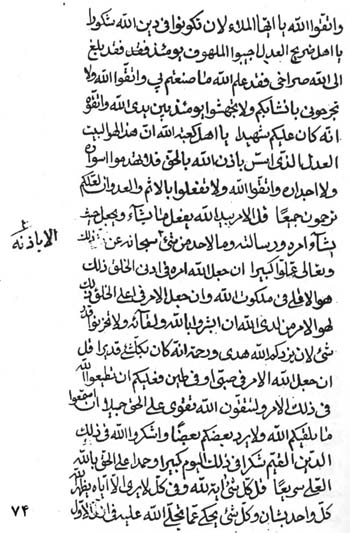 واتقوا الله يا ايها الملاء لان تكونوا في دين الله شكورا
يا اهل العدل اجيبوا الملهوف يومئذ فقد بلغ
الى الله صراخي فقد علم الله ما صنعتم بي واتقوا الله ولا
يومئذ بين يدى الله واتقوه
انه كان عليكم شهيدا يا اهل كعبة الله ان هذا لهو البيت
العدل الذى اسس باذن الله بالحق فلا تخدموا اسواره
ولا جدرانه واتقوا الله ولا تفعلوا بالاثم والعدوان لعلكم
ترحمون جميعا قل الامر بيد الله يفعل ما يشآء ويجعل حيث
الا باذنه
يشآء امره ورسالته وما لاحد من شئ سبحانه عن ذلك
وتعالى علوا كبيرا ان جعل الله امره في ادنى الخلق ذلك
هو الاعلى في ملكوت الله وان جعل الامر في اعلى الخلق ذلك
لهو الامر من لدى الله ان ابشروا بالله ولقآئه ولا تحزنوا قل
شئ لان يزدكم الله هدى ورحمة انه كان بكل شئ قديرا قل
ان جعل الله الامر في صبى او في طين فعليكم ان تطيعوا الله
في ذلك الامر ولتتقون الله بتقوى على الحق جميلا ان اسمعوا
ما يلقيكم الله ولا يرد بعضكم بعضا واشكروا الله في ذلك
الدين القيم شكرا في ذلك اليوم كبيرا وحمدا على الحق بالله
العلى سريعا قل كل شئ اية لله وفي كل لا يرى الا اياه
كل واحد بشان وكل شئ يحكى عما تجلى الله عليه في الاول
٧٤